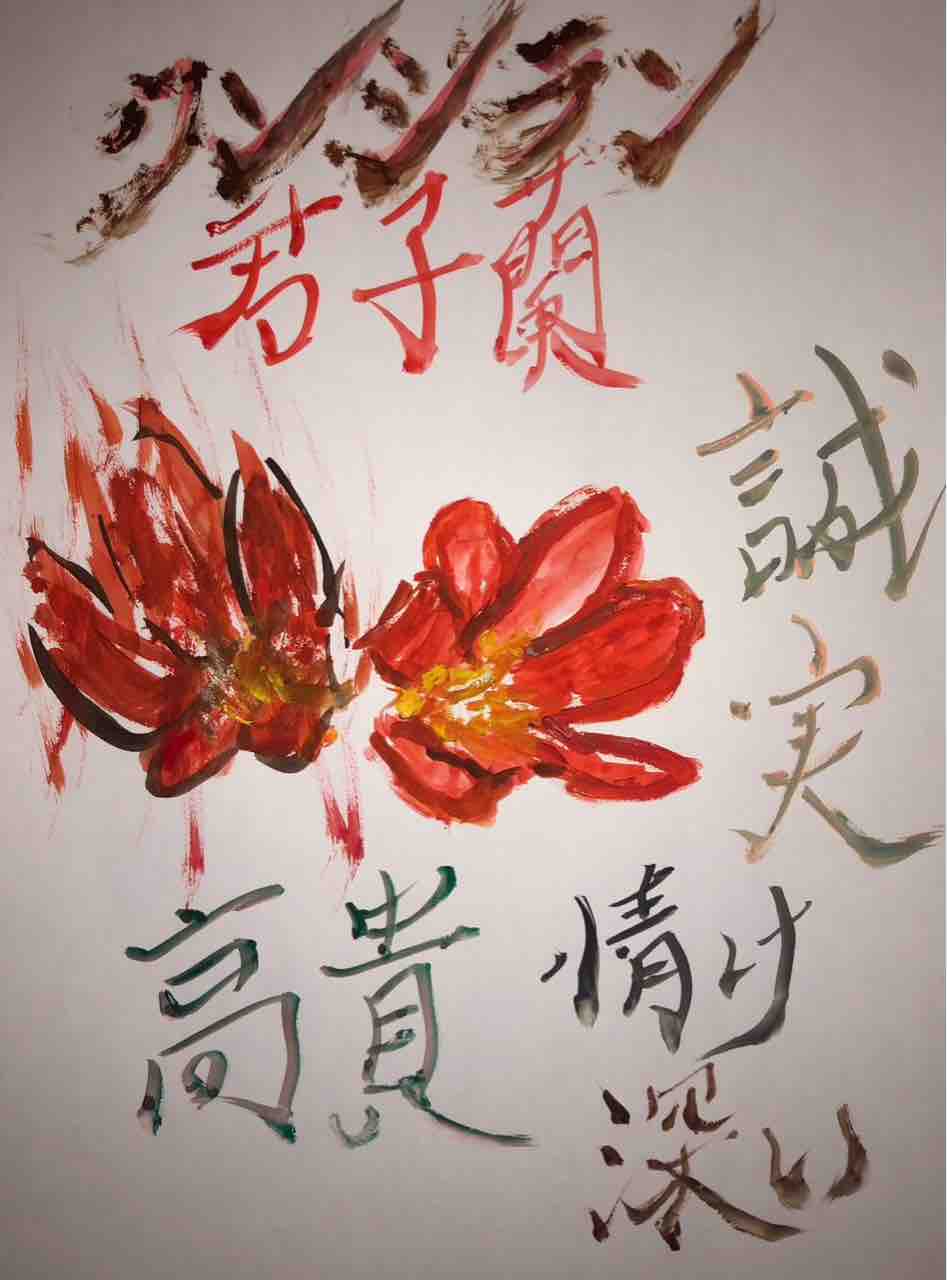 クンシラン
君子蘭
誠実
高貴
情け
深い